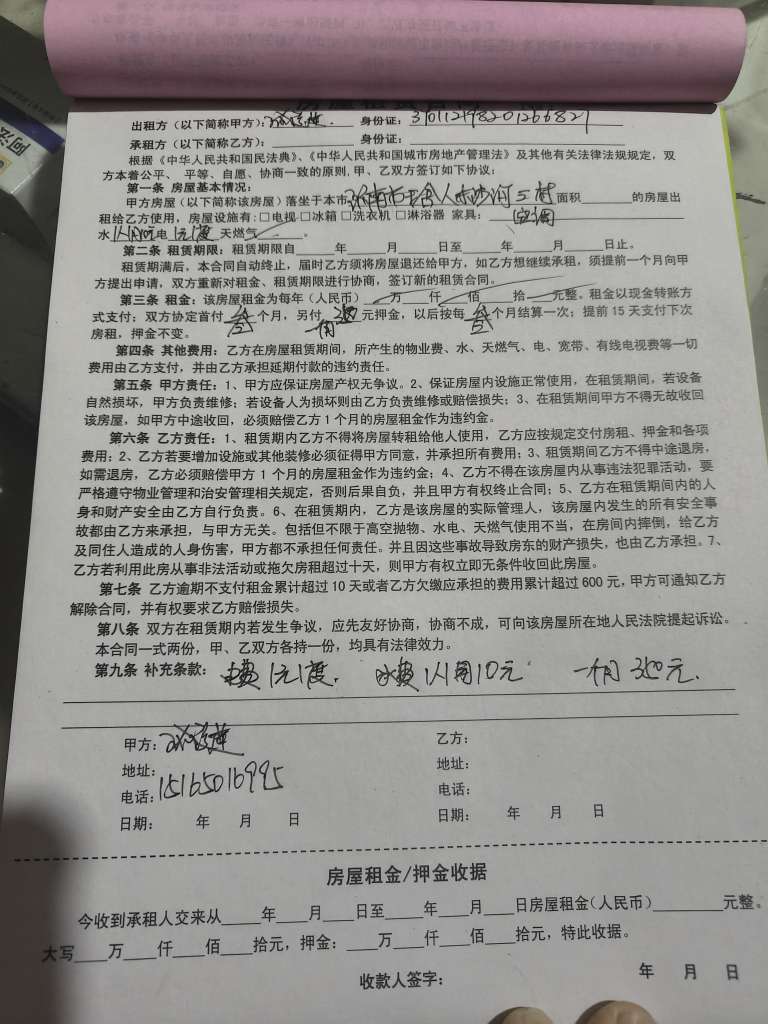 房屋租赁合同
出租方（以下简称甲方）： 身份证：
承租方（以下简称乙方）： 身份证：
根据《中华人民共和国民法典》、《中华人民共和国城市房地产管理法》及其他有关法律法规规定，双
方本着公平、平等、自愿、协商一致的原则,甲、乙双方签订如下协议：
第一条 房屋基本情况：
甲方房屋（以下简称该房屋）落坐于本市 济南市 沙河三村 面积 的房屋出
租给乙方使用，房屋设施有：□电视 □冰箱 □洗衣机 □淋浴器 家具： 空调
水 电 1元1度 天燃气
第二条 租赁期限：租赁期限自 年 月 日至 年 月 日止。
租赁期满后，本合同自动终止，届时乙方须将房屋退还给甲方，如乙方想继续承租，须提前一个月向甲
方提出申请，双方重新对租金、租赁期限进行协商，签订新的租赁合同。
第三条 租金：该房屋租金为每年（人民币） 万 仟 佰 拾 元整。租金以现金转账方
式支付；双方协定首付 叁 个月，另付 一月350 元押金，以后按每 叁 个月结算一次；提前15天支付下次
房租，押金不变。
第四条 其他费用：乙方在房屋租赁期间，所产生的物业费、水、天燃气、电、宽带、有线电视费等一切
费用由乙方支付，并由乙方承担延期付款的违约责任。
第五条 甲方责任：1、甲方应保证房屋产权无争议。2、保证房屋内设施正常使用，在租赁期间，若设备
自然损坏，甲方负责维修；若设备人为损坏则由乙方负责维修或赔偿损失；3、在租赁期间甲方不得无故收回
该房屋，如甲方中途收回，必须赔偿乙方1个月的房屋租金作为违约金。
第六条 乙方责任：1、租赁期内乙方不得将房屋转租给他人使用，乙方应按规定交付房租、押金和各项
费用；2、乙方若要增加设施或其他装修必须征得甲方同意，并承担所有费用；3、租赁期间乙方不得中途退房，
如需退房，乙方必须赔偿甲方1个月的房屋租金作为违约金；4、乙方不得在该房屋内从事违法犯罪活动，要
严格遵守物业管理和治安管理相关规定，否则后果自负，并且甲方有权终止合同；5、乙方在租赁期间内的人
身和财产安全由乙方自行负责。6、在租赁期内，乙方是该房屋的实际管理人，该房屋内发生的所有安全事
故都由乙方来承担，与甲方无关。包括但不限于高空抛物、水电、天燃气使用不当，在房间内摔倒，给乙方
及同住人造成的人身伤害，甲方都不承担任何责任。并且因这些事故导致房东的财产损失，也由乙方承担。7、
乙方若利用此房从事非法活动或拖欠房租超过十天，则甲方有权立即无条件收回此房屋。
第七条 乙方逾期不支付租金累计超过10天或者乙方欠缴应承担的费用累计超过600元，甲方可通知乙方
解除合同，并有权要求乙方赔偿损失。
第八条 双方在租赁期内若发生争议，应先友好协商，协商不成，可向该房屋所在地人民法院提起诉讼。
本合同一式两份，甲、乙双方各持一份，均具有法律效力。
第九条 补充条款： 电费1元1度. 水费1人1月10元 一个月350元.
甲方： 乙方：
地址： 地址：
电话：15165016995 电话：
日期： 年 月 日 日期： 年 月 日
房屋租金/押金收据
今收到承租人交来从 年 月 日至 年 月 日房屋租金（人民币） 元整。
大写 万 仟 佰 拾元，押金： 万 仟 佰 拾元，特此收据。
收款人签字： 年 月 日